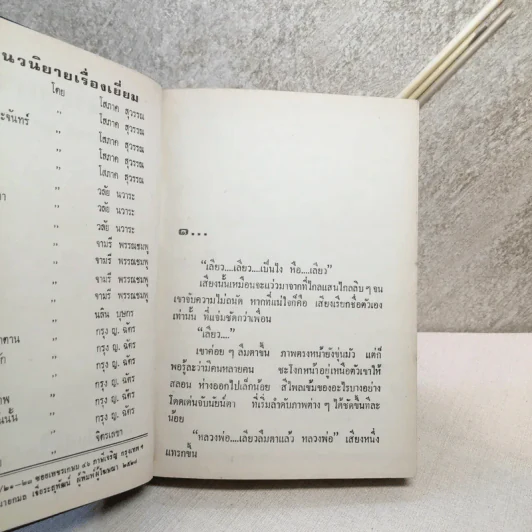 นวนิยายเรื่องเยี่ยม
โดย โสภาค สุวรรณ
ะจันทร์ " โสภาค สุวรรณ
" โสภาค สุวรรณ
" โสภาค สุวรรณ
" โสภาค สุวรรณ
า " วลัย นวาระ
" วลัย นวาระ
" วลัย นวาระ
" จามรี พรรณชมพู
" จามรี พรรณชมพู
" จามรี พรรณชมพู
" จามรี พรรณชมพู
" นลิน บุษกร
าตาน " กรุง ญ. ฉัตร
ัก " กรุง ญ. ฉัตร
" กรุง ญ. ฉัตร
าพ " กรุง ญ. ฉัตร
นนั้น " กรุง ญ. ฉัตร
" จิตรเลขา
/๒๑-๒๓ ซอยเพชรเกษม ๔๖ ภาษีเจริญ กรุงเทพฯ
ผู้พิมพ์ผู้โฆษณา ๒๕๒๘
๑...
"เลียว....เลียว....เป็นไง หือ....เลียว"
เสียงนั้นเหมือนจะแว่วมาจากที่ไกลแสนไกลลิบ ๆ จน
เขาจับความไม่ถนัด หากที่แน่ใจก็คือ เสียงเรียกชื่อตัวเอง
เท่านั้น ที่แจ่มชัดกว่าเพื่อน
"เลียว...."
เขาค่อย ๆ ลืมตาขึ้น ภาพตรงหน้ายังขุ่นมัว แต่ก็
พอรู้ละว่ามีคนหลายคน ชะโงกหน้าอยู่เหนือตัวเขาให้
สลอน ห่างออกไปเล็กน้อย สีไพลเข้มของอะไรบางอย่าง
โดดเด่นจับนัยน์ตา ที่เริ่มลำดับภาพต่าง ๆ ได้ชัดขึ้นทีละ
น้อย
"หลวงพ่อ....เลียวลืมตาแล้ว หลวงพ่อ" เสียงหนึ่ง
แทรกขึ้น